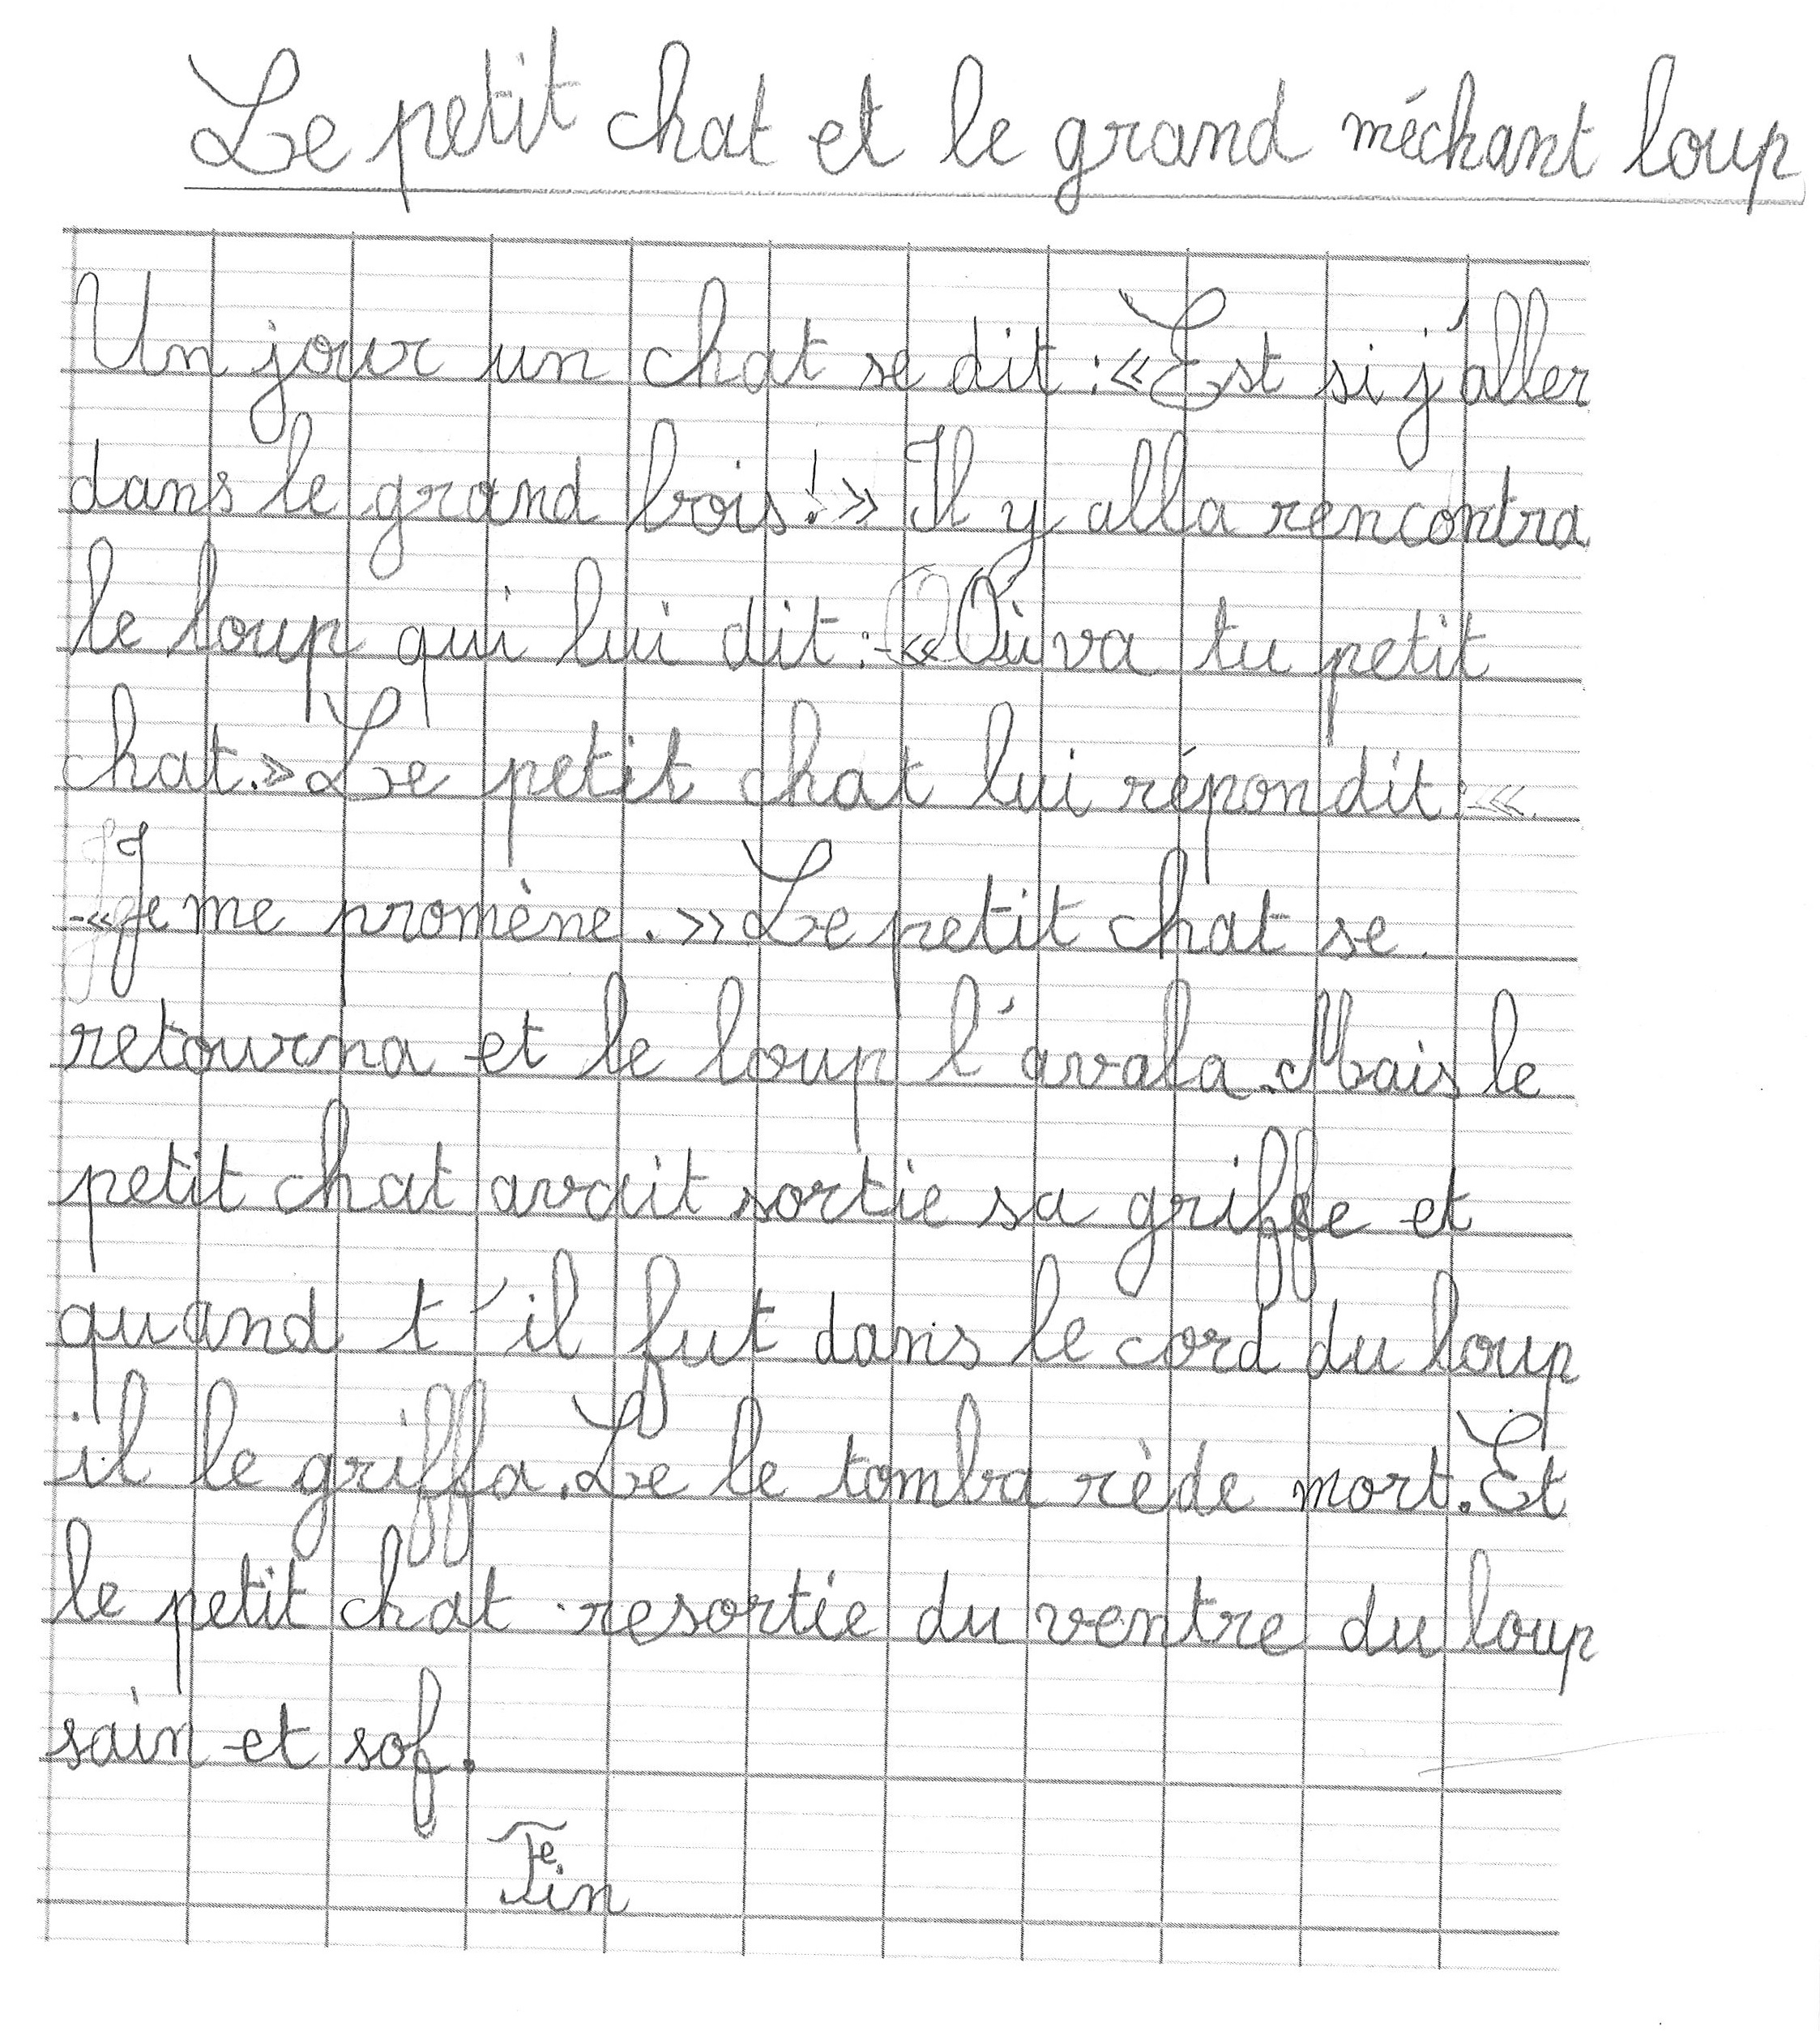 Le petit chat et le grand méchant loup
Un jour un chat se dit : « Est si j'aller
dans le grand bois ! » Il y alla rencontra
le loup qui lui dit : - « Où va tu petit
chat. » Le petit chat lui répondit : «
- « Je me promène. » Le petit chat se
retourna et le loup l'avala. Mais le
petit chat avait sortie sa griffe et
quand t'il fut dans le cord du loup
il le griffa. Le le tomba rède mort. Et
le petit chat resortie du ventre du loup
sain et sof.
Fin